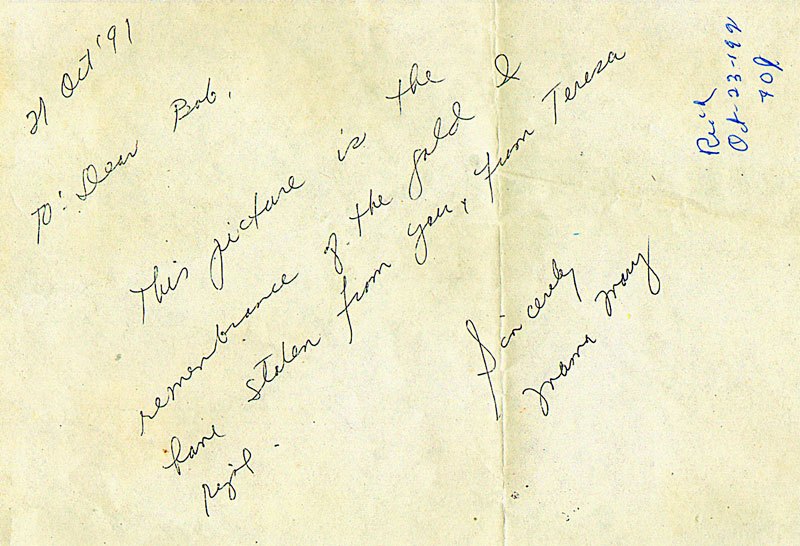 21 Oct '91
To: Dear Bob,
This picture is the
remenbrance of the gold I
have stolen from you, from Teresa
Rizal.
Sincerely
Mama Mary
Rec'd
Oct-23-192